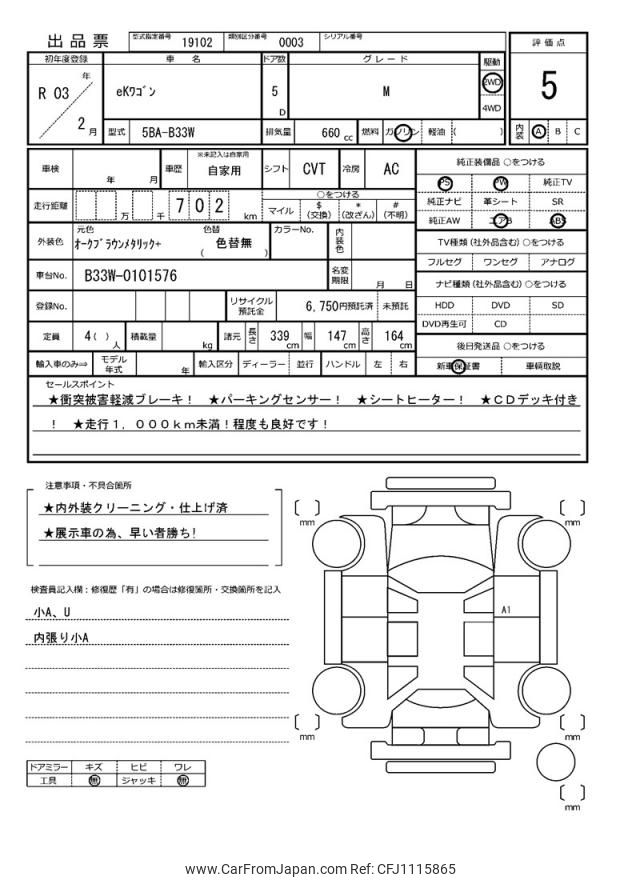 出品票 型式指定番号 19102 類別区分番号 0003 シリアル番号
評価点
5
初年度登録 車名 ドア数 グレード 駆動
R 03 年 2 月 eKワゴン 5 D M 2WD 4WD
型式 5BA-B33W 排気量 660 cc 燃料 ガソリン 軽油 ( ) 内装 A B C
車検 年 月 車歴 ※未記入は自家用 自家用 シフト CVT 冷房 AC
純正装備品 ○をつける
PS PW 純正TV
純正ナビ 革シート SR
純正AW エアB ABS
走行距離 万 千 7 0 2 km
○をつける
マイル $ (交換) * (改ざん) # (不明)
外装色 元色 オークブラウンメタリック+ 色替 ( 色替無 ) カラーNo. 内装色
TV種類 (社外品含む) ○をつける
フルセグ ワンセグ アナログ
車台No. B33W-0101576 名変期限 月 日
ナビ種類 (社外品含む) ○をつける
HDD DVD SD
DVD再生可 CD
登録No. リサイクル預託金 6,750円預託済 未預託
定員 4( ) 人 積載量 kg 諸元 長さ 339 cm 幅 147 cm 高さ 164 cm
後日発送品 ○をつける
新車保証書 車輌取説
輸入車のみ⇒ モデル年式 年 輸入区分 ディーラー 並行 ハンドル 左 右
セールスポイント
★衝突被害軽減ブレーキ！ ★パーキングセンサー！ ★シートヒーター！ ★ＣＤデッキ付き
！ ★走行１，０００ｋｍ未満！程度も良好です！
注意事項・不具合箇所
★内外装クリーニング・仕上げ済
★展示車の為、早い者勝ち!
検査員記入欄：修復歴「有」の場合は修復箇所・交換箇所を記入
小A、U
内張り小A
mm
mm
A1
mm
mm
mm
ドアミラー キズ ヒビ ワレ
工具 無 ジャッキ 無
www.CarFromJapan.com Ref: CFJ1115865